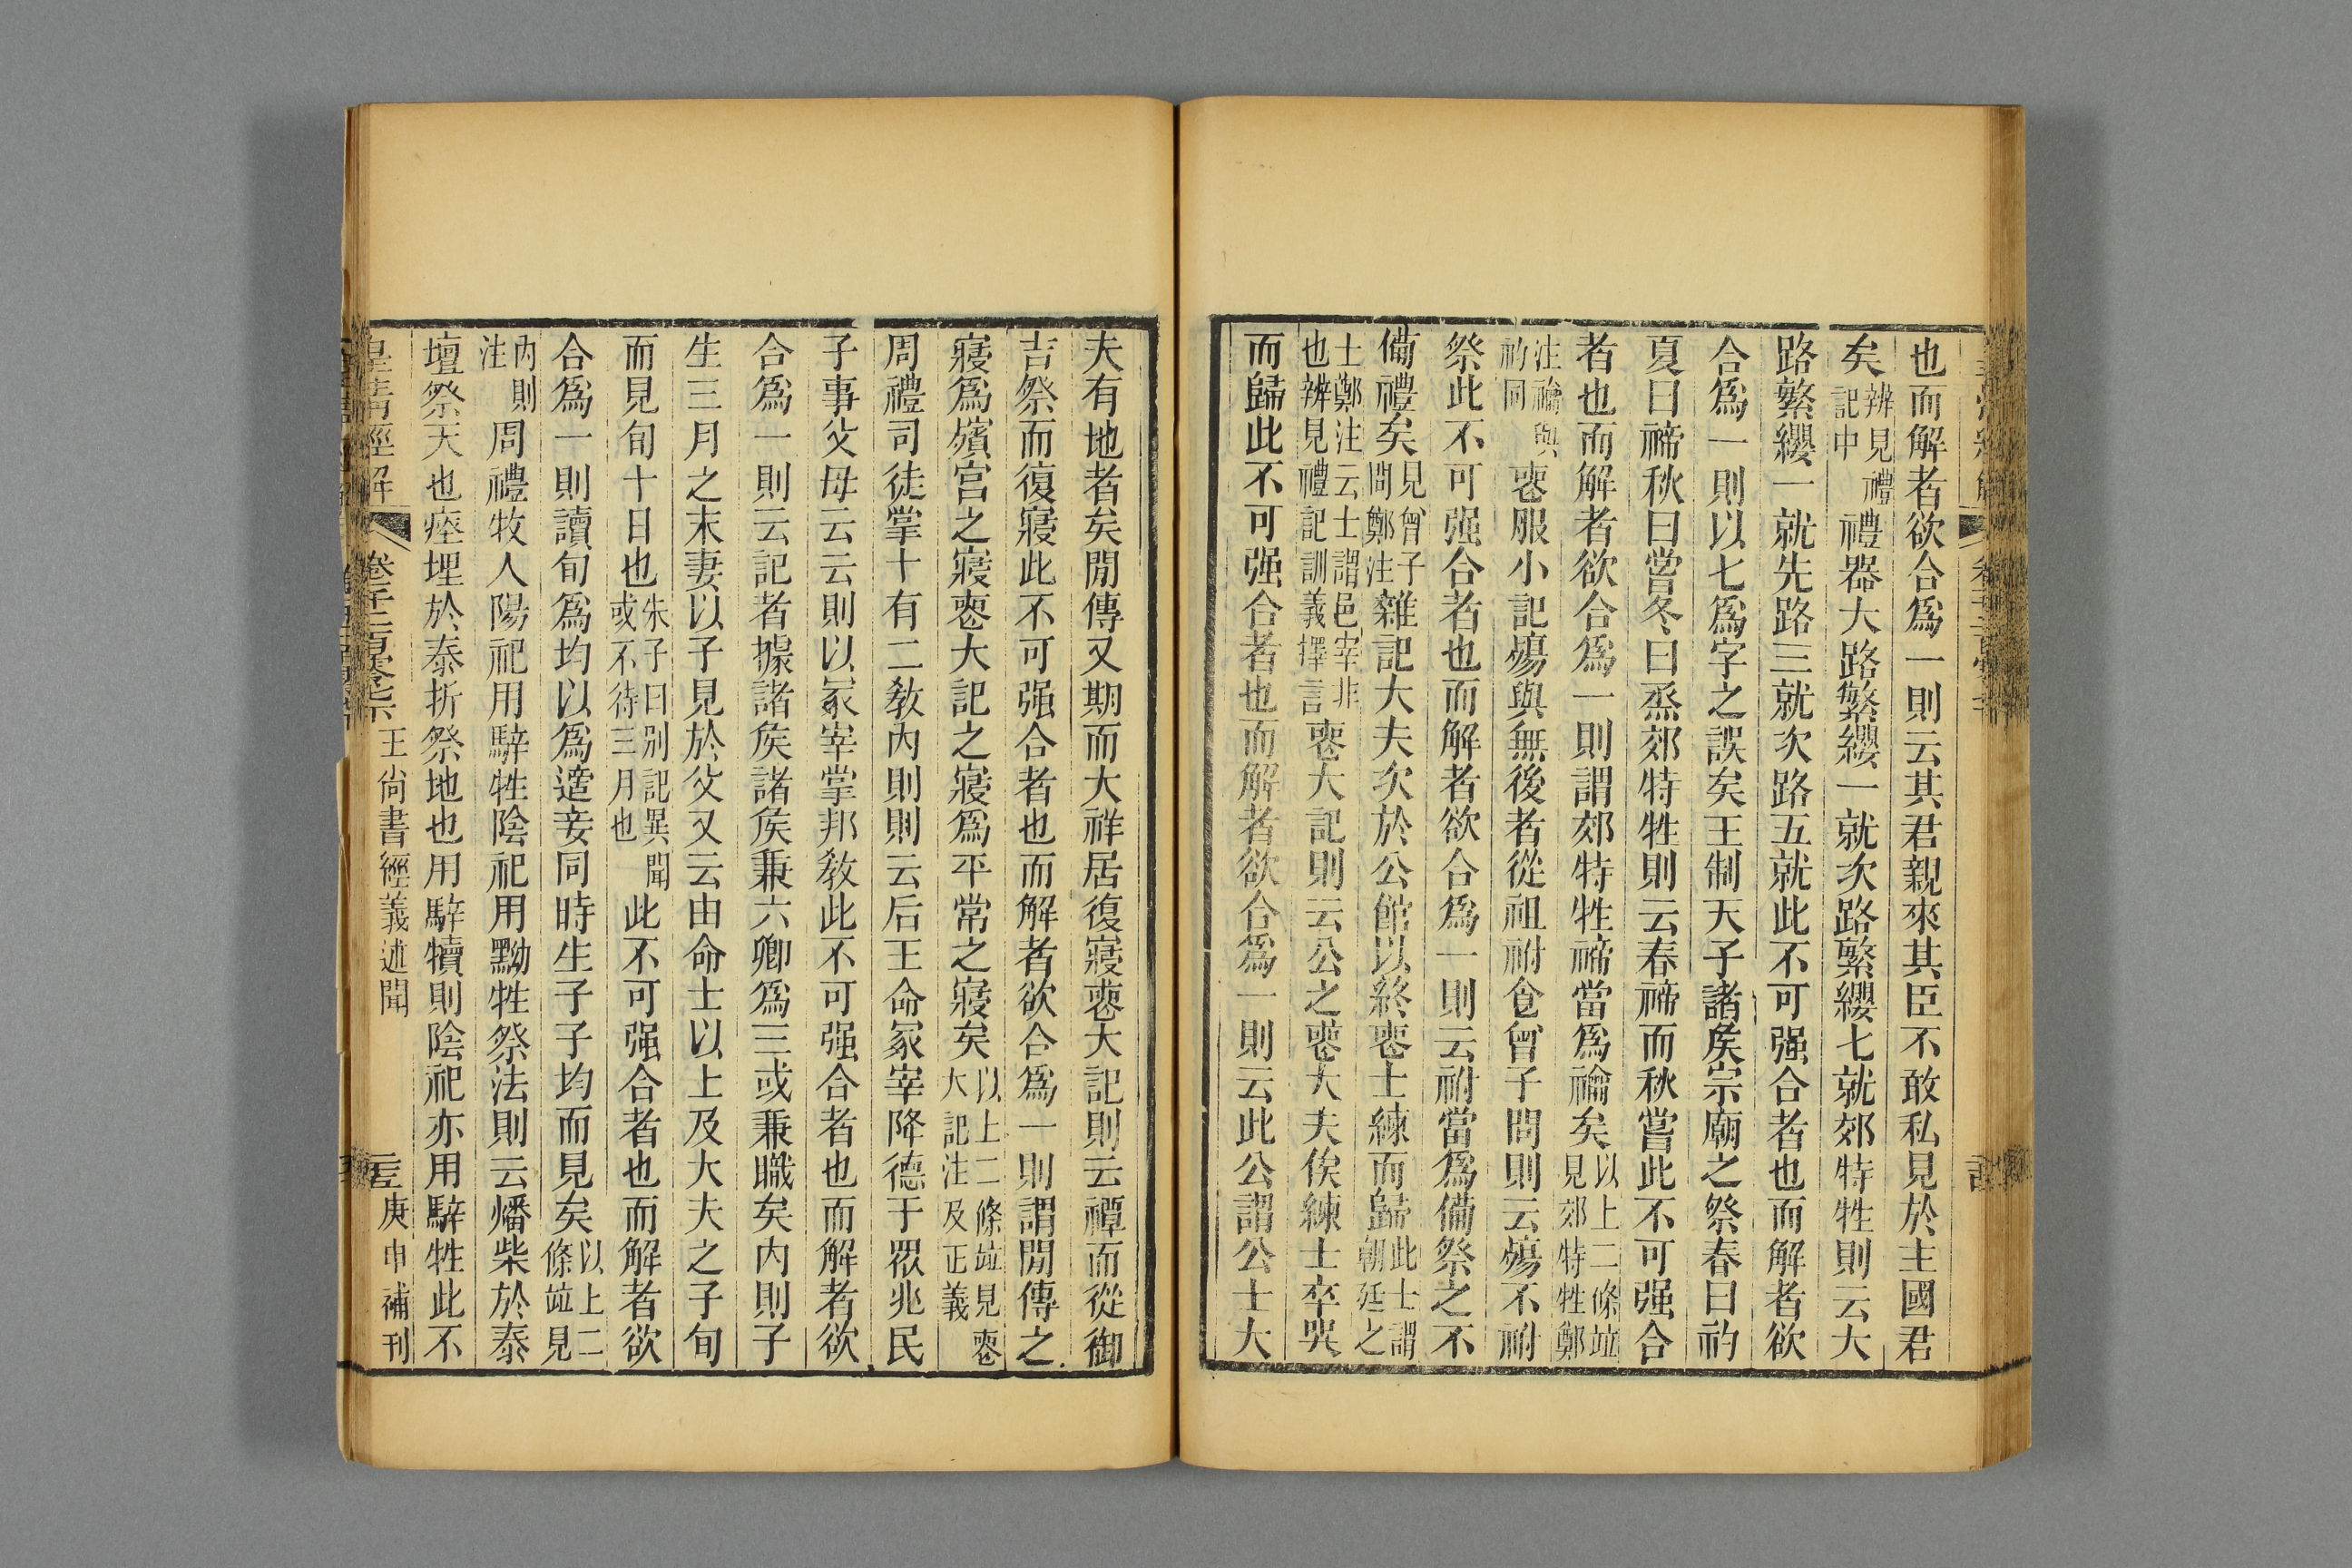 也而解者欲合爲一則云其君親來其臣不敢私見於主國君
矣辨見禮記中禮器大路繁纓一就次路繁纓七就郊特牲則云大
路繁纓一就先路三就次路五就此不可强合者也而解者欲
合爲一則以七爲字之誤矣王制天子諸矦宗廟之祭春曰礿
夏曰禘秋曰嘗冬曰烝郊特牲則云春禘而秋嘗此不可强合
者也而解者欲合爲一則謂郊特牲禘當爲禴矣以上二條竝見郊特牲鄭
注禴與礿同喪服小記殤與無後者從祖祔食曾子問則云殤不祔
祭此不可强合者也而解者欲合爲一則云祔當爲備祭之不
備禮矣見曾子問鄭注雜記大夫次於公館以終喪士練而歸此士謂朝廷之
士鄭注云士謂邑宰非也辨見禮記訓義擇言喪大記則云公之喪大夫俟練士卒哭
而歸此不可强合者也而解者欲合爲一則云此公謂公士大
夫有地者矣閒傳又期而大祥居復寢喪大記則云禫而從御
吉祭而復寢此不可强合者也而解者欲合爲一則謂閒傳之
寢爲殯宮之寢喪大記之寢爲平常之寢矣以上二條竝見喪大記注及正義
周禮司徒掌十有二敎內則則云后王命冢宰降德于眾兆民
子事父母云云則以冢宰掌邦敎此不可强合者也而解者欲
合爲一則云記者據諸矦諸矦兼六卿爲三或兼職矣內則子
生三月之末妻以子見於父又云由命士以上及大夫之子旬
而見旬十日也朱子曰别記異聞或不待三月也此不可强合者也而解者欲
合爲一則讀旬爲均以爲適妾同時生子子均而見矣以上二條竝見
內則注周禮牧人陽祀用騂牲陰祀用黝牲祭法則云燔柴於泰
壇祭天也瘞埋於泰折祭地也用騂犢則陰祀亦用騂牲此不
皇清經解 卷千二百零七下 王尚書經義述聞 庚申補刊